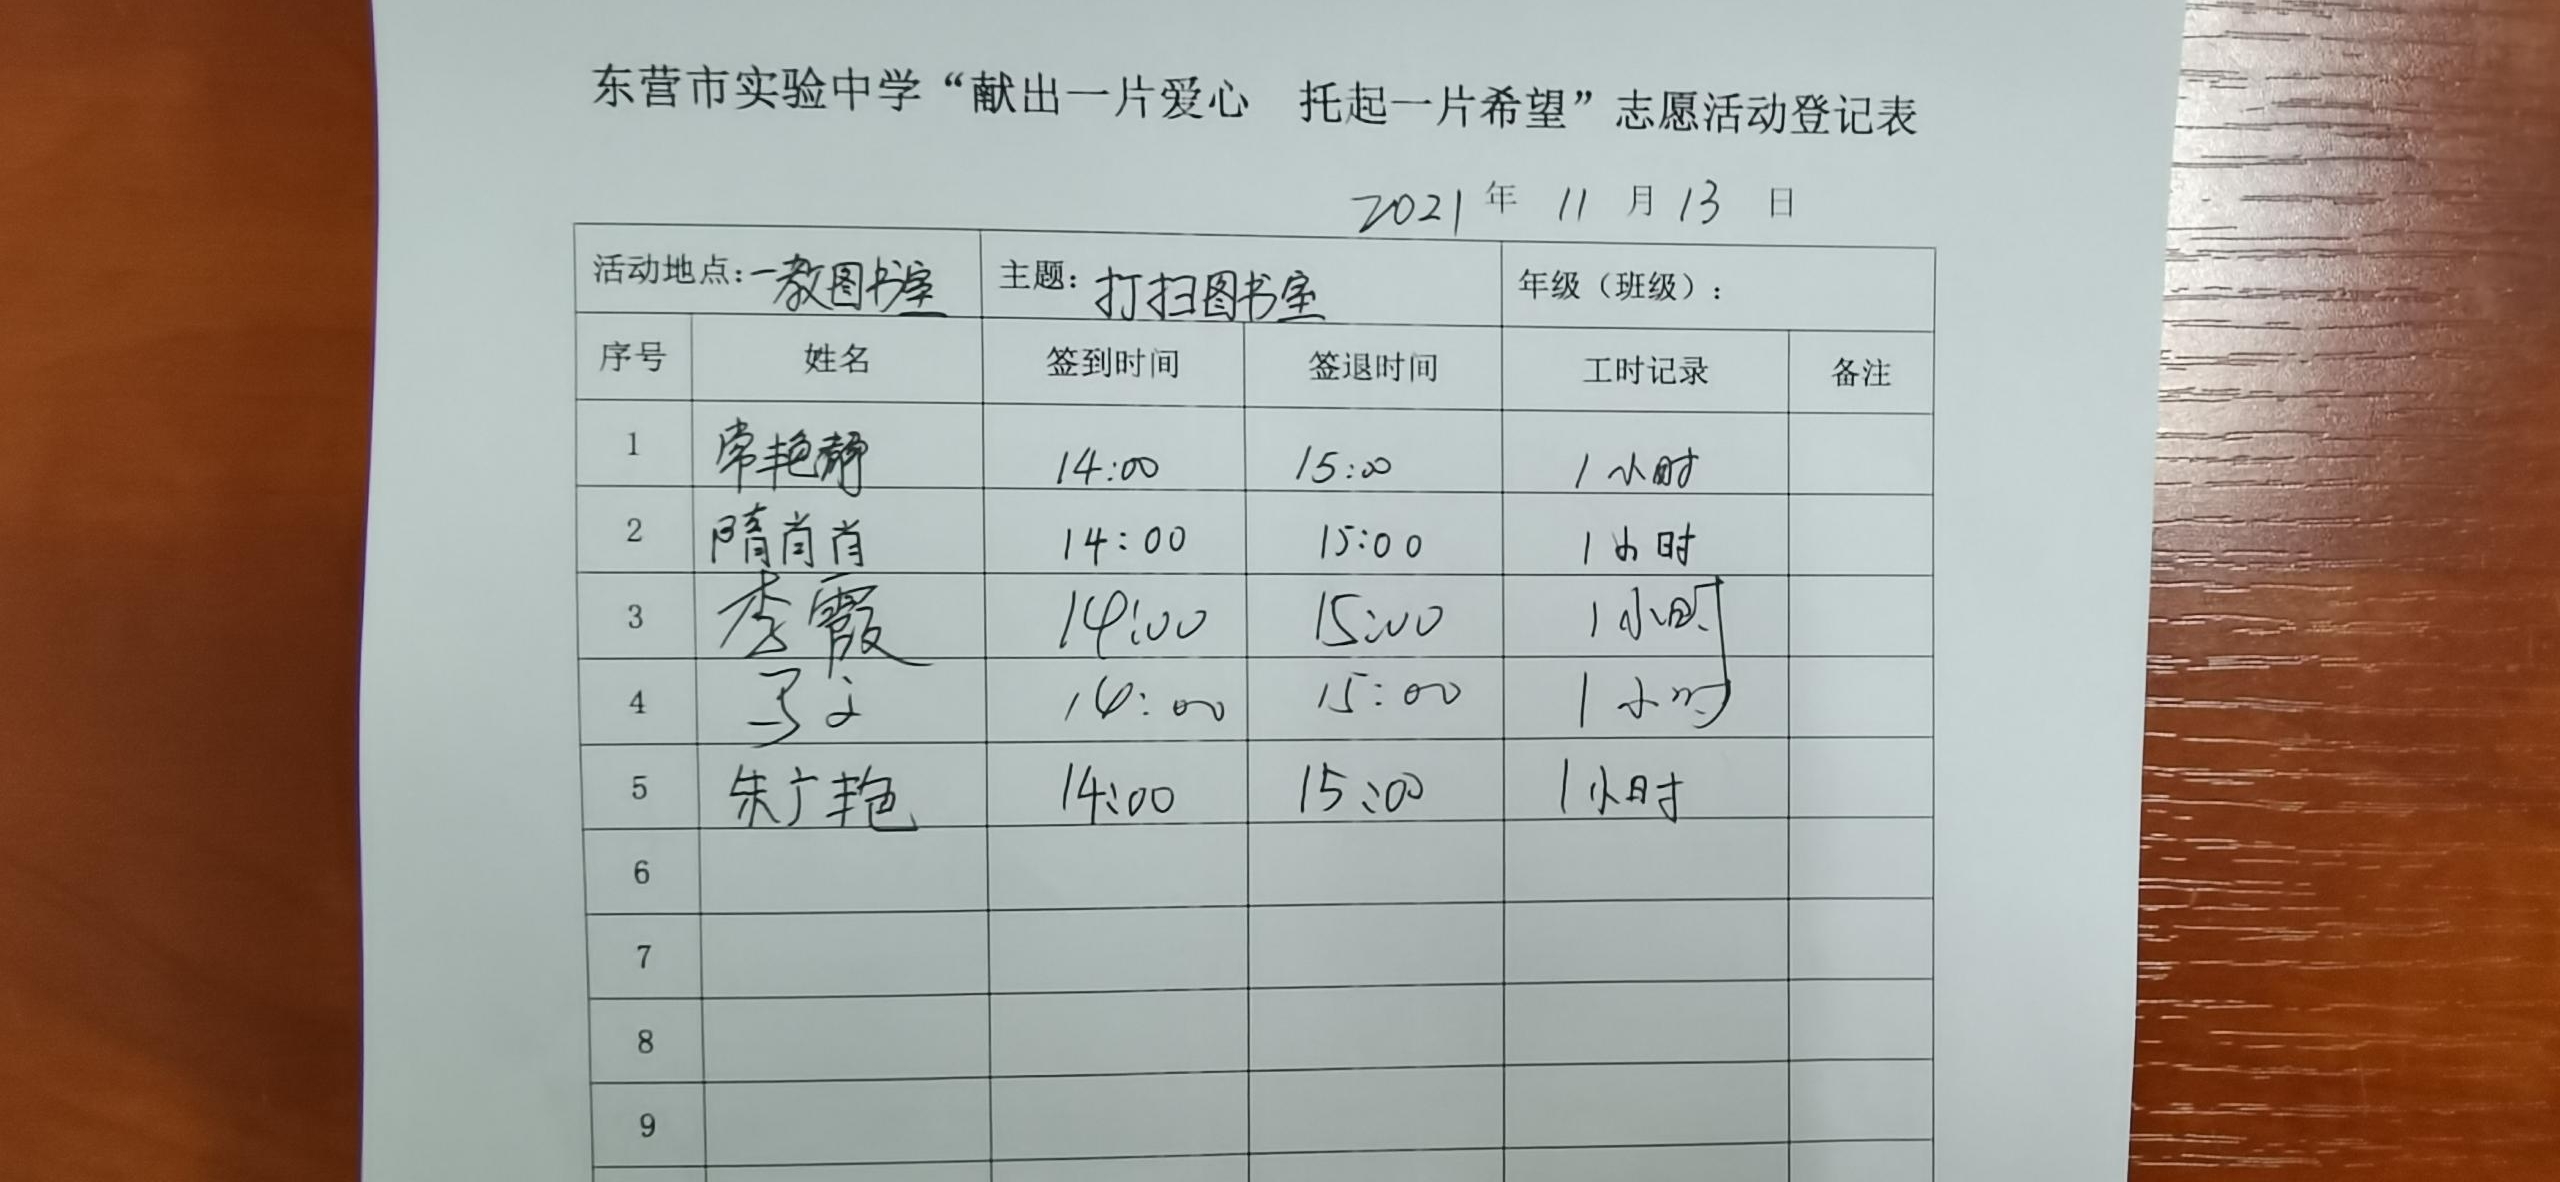 东营市实验中学“献出一片爱心 托起一片希望”志愿活动登记表
2021 年 11 月 13 日
活动地点：一教图书室 主题：打扫图书室 年级（班级）：
序号 姓名 签到时间 签退时间 工时记录 备注
1 常艳静 14:00 15:00 1小时
2 隋肖肖 14:00 15:00 1小时
3 李霞 14:00 15:00 1小时
4 马文 14:00 15:00 1小时
5 朱广艳 14:00 15:00 1小时
6
7
8
9